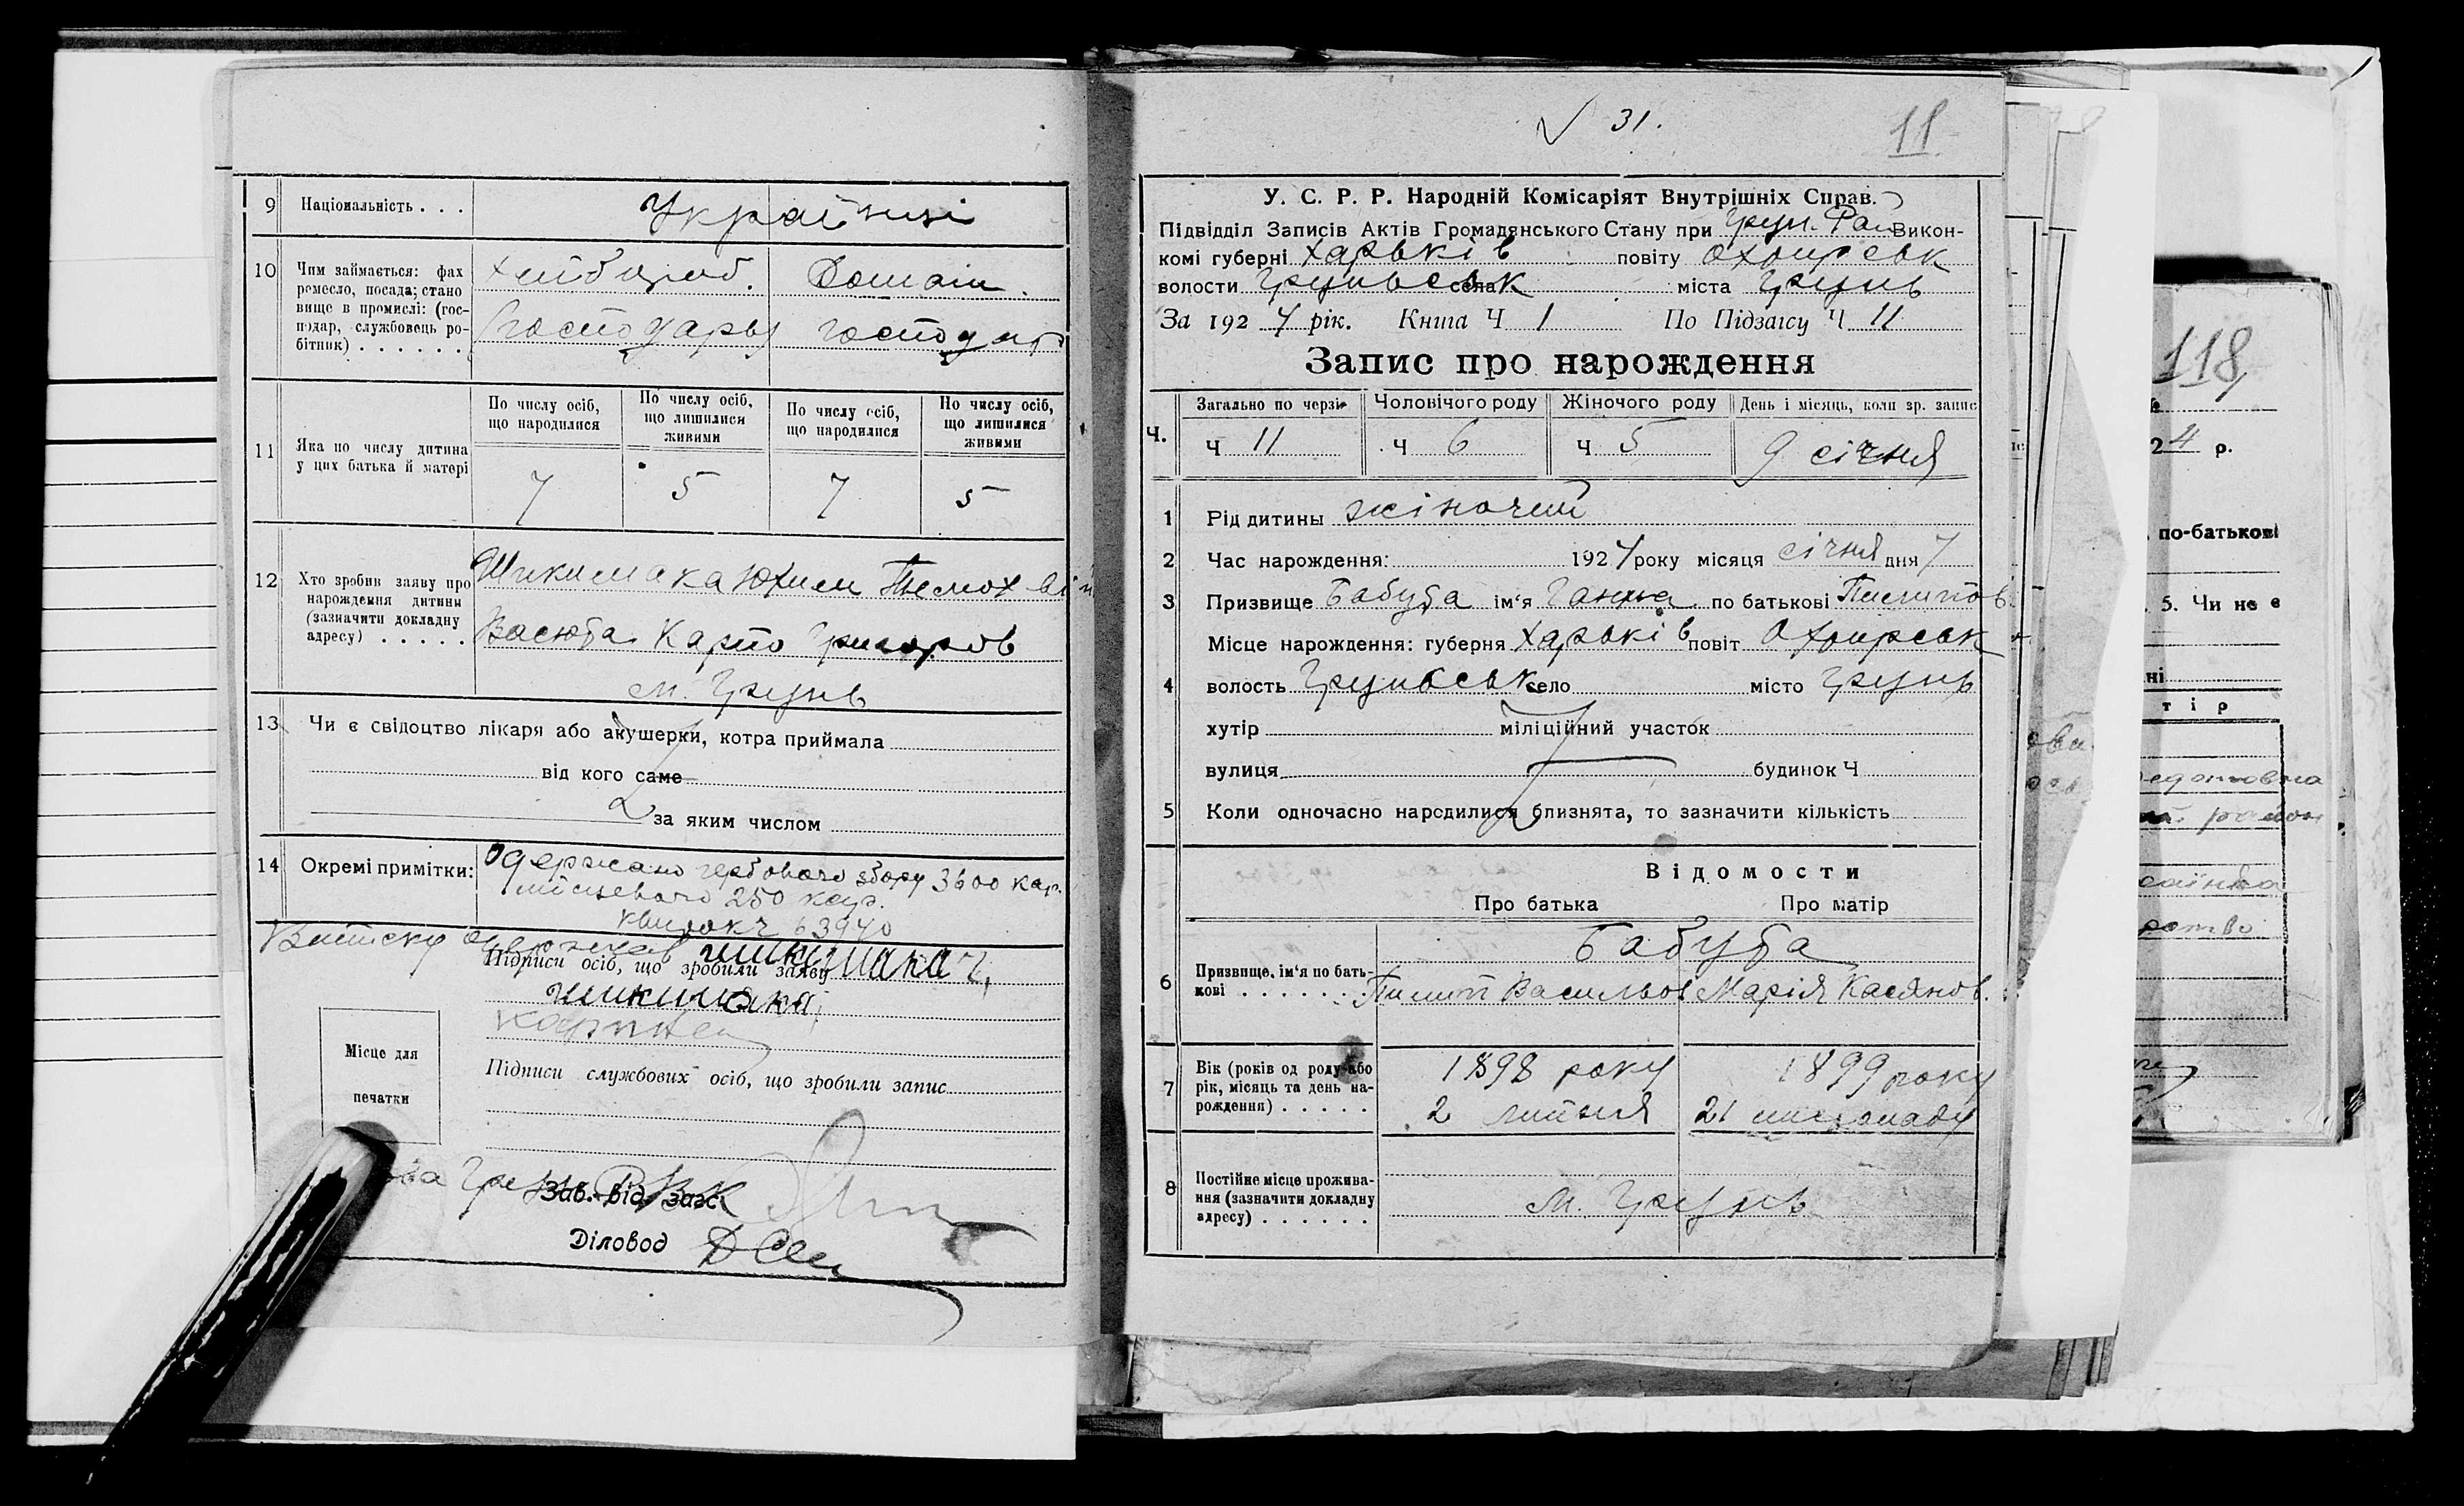 9 Національність . . . Українці
10 Чим займається: фах ремесло, посада; становище в промислі: (господар, службовець робітник) . . . . . .
Хлібороб. Домаш.
господарь господар
11 Яка по числу дитина у цих батька й матері
По числу осіб, що народилися
По числу осіб, що лишилися живими
По числу осіб, що народилися
По числу осіб, що лишилися живими
7 5 7 5
12 Хто зробив заяву про нарождення дитини (зазначити докладну адресу) . . . . .
Юхим
Васюта Карпо Григоров
м. Грунь
13 Чи є свідоцтво лікаря або акушерки, котра приймала
від кого саме
за яким числом
14 Окремі примітки:
Одержано гербового збору 3600 кар.
місцевого 250 кар.
63940
Виписку одержав
Підписи осіб, що зробили заяву
Місце для печатки
Підписи службових осіб, що зробили запис
Зав. від. загс
Діловод
✓ 31.
11
У. С. Р. Р. Народній Комісаріят Внутрішніх Справ.
Підвідділ Записів Актів Громадянського Стану при Грун. Рай Викон-
комі губерні Харьків повіту Охтирськ
волости Груньськ села міста Грунь
За 192 4 рік. Книга Ч 1 По Підзагсу Ч 11
Запис про нарождення
Ч. Загально по черзі Чоловічого роду Жіночого роду День і місяць, коли зр. запис
Ч 11 Ч 6 Ч 5 9 січня
1 Рід дитины жіночий
2 Час нарождення: 1924 року місяця січня дня 7
3 Призвище Бабуба ім'я Ганна по батькові Пилипов
Місце нарождення: губерня Харьків повіт Охтирськ
4 волость Груньськ село місто Грунь
хутір міліційний участок
вулиця будинок Ч
5 Коли одночасно народилися близнята, то зазначити кількість
Відомости
Про батька Про матір
Бабуба
6 Призвище, ім'я по батькові . . . . . . . Пилип Васильов Марія Касянов.
7 Вік (років од роду або рік, місяць та день нарождення) . . . . .
1898 року 1899 року
2 липня 21 листопаду
8 Постійне місце проживання (зазначити докладну адресу) . . . . . .
м. Грунь
118
24 р.
по-батькові
5. Чи не є
тір
район